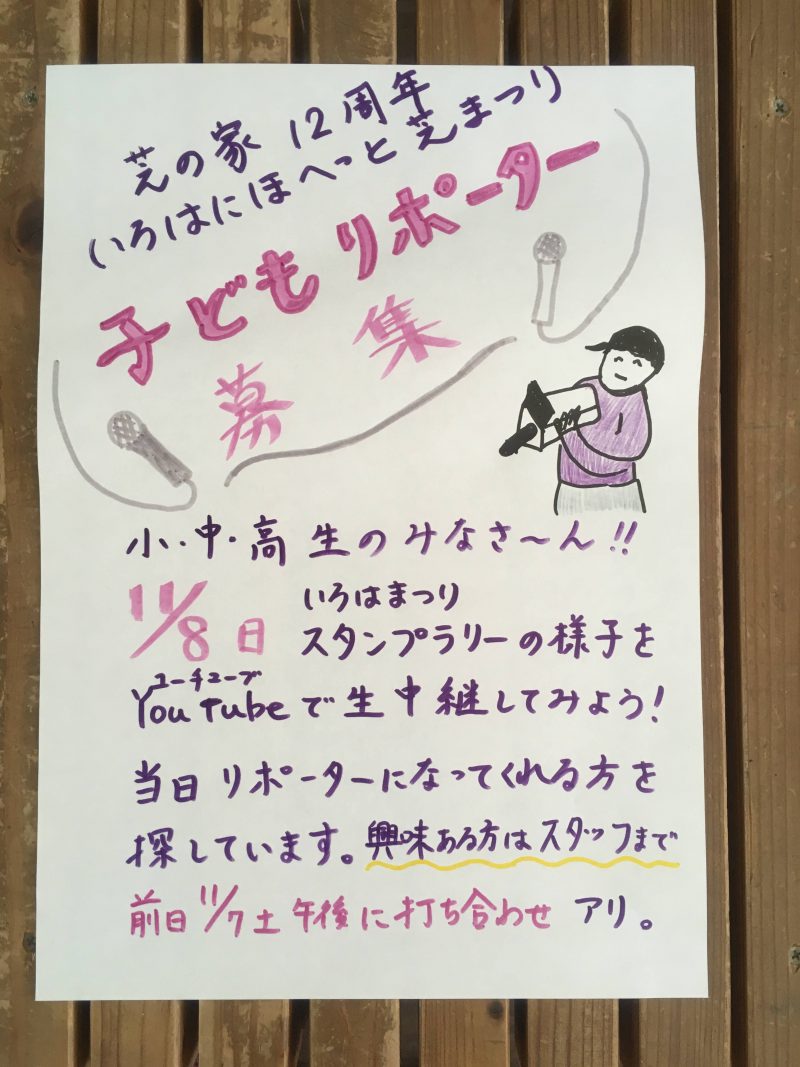 芝の家 12周年
いろはにほへっと 芝まつり
子どもリポーター
募集
小・中・高生のみなさ〜ん!!
11/8日 いろはまつり
スタンプラリーの様子を
ユーチューブ
YouTubeで生中継してみよう!
当日リポーターになってくれる方を
探しています。興味ある方はスタッフまで
前日11/7土午後に打ち合わせ アリ。